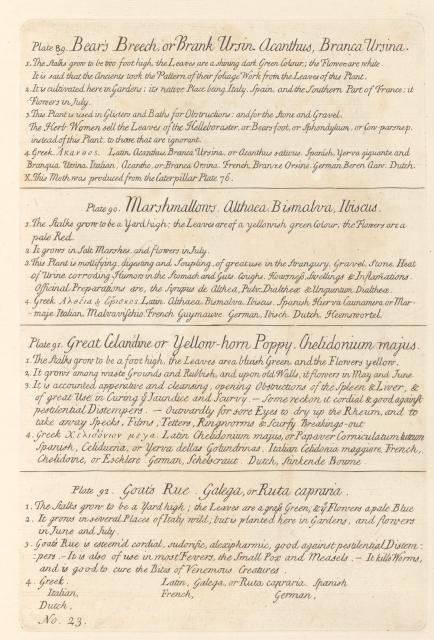 Plate 89. Bear's Breech, or Brank Ursin. Acanthus, Branca Ursina.
1. The Stalks grow to be two foot high, the Leaves are a shining dark Green Colour; the Flowers are white.
It is said that the Ancients took the Pattern of their foliage Work from the Leaves of this Plant.
2. It is cultivated here in Gardens; its native Place being Italy, Spain, and the Southern Part of France; it
Flowers in July.
3. This Plant is used in Glisters and Baths for Obstructions; and for the Stone and Gravel.
The Herb Women sell the Leaves of the Helleboraster, or Bears foot, or Sphondylium, or Cow-parsnep,
instead of this Plant, to those that are ignorant.
4. Greek, Ακανθος. Latin, Acanthus, Branca Ursina, or Acanthus sativus. Spanish, Yerva giguante and
Branqua Ursina. Italian, Acantho, or Branca Orsina. French, Branche Orsine. German, Beren Claw. Dutch.
X. This Moth was produced from the Caterpillar Plate 76.
Plate 90. Marshmallows. Althaea Bismalva, Ibiscus.
1. The Stalks grow to be a Yard high; the Leaves are of a yellowish green Colour; the Flowers are a
pale Red.
2. It grows in Salt Marshes, and flowers in July.
3. This Plant is mollifying, digesting and Soupling, of great use in the Strangury, Gravel, Stone, Heat
of Urine, corroding Humors in the Stomach and Guts, Coughs, Hoarsness, Swellings & Inflamations.
Officinal Preparations are, the Syrupus de Althea, Pulv. Dialtheæ & Unguentum Dialtheæ.
4. Greek, Αλθαία & Εβισκος. Latin, Althaea, Bismalva, Ibiscus. Spanish, Hierva Caunamera, or Mar-
maje. Italian, Malvavischio. French, Guymauve. German, Ibisch. Dutch, Heemswortel.
Plate 91. Great Celandine or Yellow-horn Poppy. Chelidonium majus.
1. The Stalks grow to be a foot high, the Leaves are a bluish Green, and the Flowers yellow,
2. It grows among waste Grounds and Rubbish, and upon old Walls; it flowers in May and June.
3. It is accounted apperative and cleansing, opening Obstructions of the Spleen & Liver, &
of great Use in Curing ye Jaundice and Scurvy. – Some reckon it cordial & good against
pestilential Distempers. – Outwardly for sore Eyes to dry up the Rheum, and to
take away Specks, Films, Tetters, Ringworms & Scurfy Breakings-out
4. Greek Χελιδόνιον μεγα. Latin Chelidonium majus, or Papaver Corniculatum luteum
Spanish, Celidueria, or Yerva dellas Golundrinas. Italian Celidonia maggiore, French,
Chelidoine, or Esclere. German, Schelwraut. Dutch, Stinkende Gouwe.
Plate 92. Goat's Rue. Galega, or Ruta capraria.
1. The Stalks grow to be a Yard high; the Leaves are a grass Green, & ye Flowers a pale Blue
2. It grows in several Places of Italy wild; but is planted here in Gardens, and flowers
in June and July.
3. Goats Rue is esteem'd cordial, sudorific, alexipharmic, good against pestilential Distem-
pers. – It is also of use in most Fevers, the Small Pox and Measels. – It kills Worms,
and is good to cure the Bites of Venemous Creatures.
4. Greek, Latin, Galega, or Ruta capraria. Spanish
Italian, French, German,
Dutch,
No. 23.